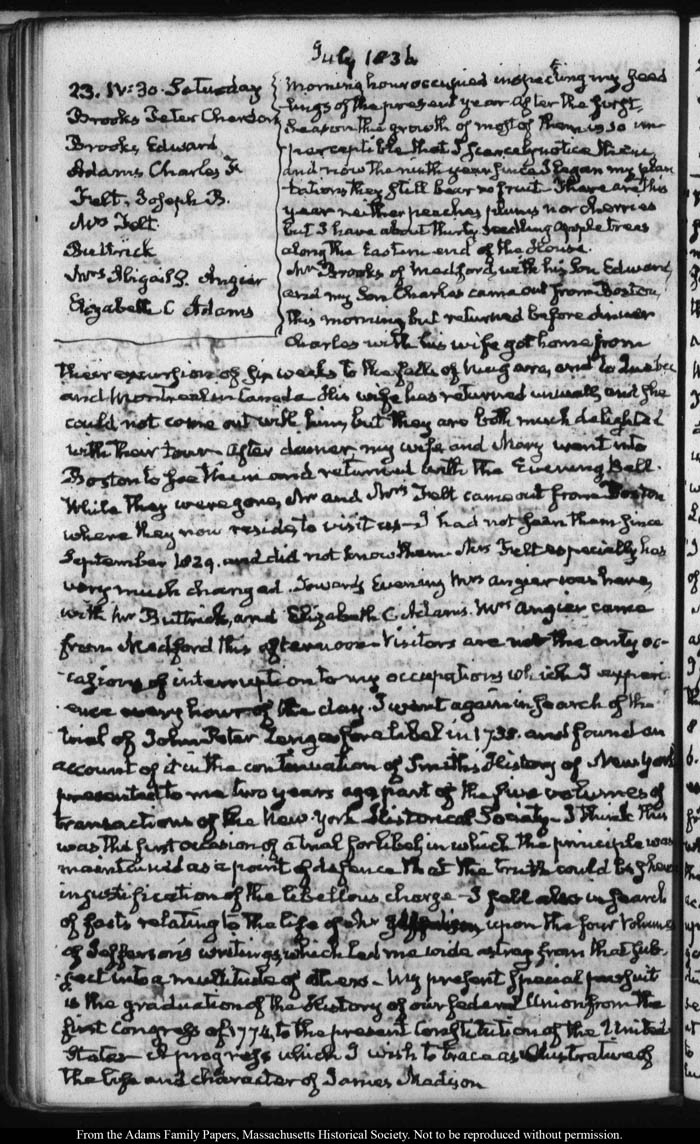 July 1836
23. IV:30. Saturday
Brooks Peter Chardon
Brooks, Edward
Adams Charles F.
Felt. Joseph B.
Mrs Felt
Buttrick
Mrs Abigail S. Angier
Elizabeth C Adams
Morning hour occupied inspecting my Seed
lings of the present year After the first
Season the growth of most of them is so im
perceptible that I scarcely notice them
and now the ninth year since I began my plan
tations they still bear no fruit. There are this
year neither peaches plums nor cherries
but I have about thirty seedling apple trees
along the Eastern end of the House.
Mr Brooks of Medford, with his Son Edward,
and my Son Charles came out from Boston,
this morning but returned before dinner
Charles with his wife got home from
their excursion of six weeks to the falls of Niagara, and to Quebec
and Montreal in Canada. His wife has returned unwell, and she
could not come out with him, but they are both much delighted
with their tour. After dinner my wife and Mary went into
Boston to see them and returned with the Evening Bell.
While they were gone, Mr and Mrs Felt came out from Boston
where they now reside, to visit us. I had not seen them since
September 1829. and did not know them. Mrs Felt especially has
very much changed. Towards Evening Mrs Angier was here,
with Mr Buttrick, and Elizabeth C. Adams. Mrs Angier came
from Medford this afternoon. Visitors are not the only oc-
casions of interruption to my occupations which I experi
ence every hour of the day. I went again in search of the
trial of John Peter Zenger for a libel in 1735. and found an
account of it in the continuation of Smith's History of New York
presented to me two years ago part of the five volumes of
transactions of the New-York Historical Society. I think this
was the first occasion of a trial for libel, in which the principle was
maintained as a point of defence that the truth could be given
in justification of the libellous charge. I fell also in search
of facts relating to the life of Mr upon the four Volumes
of Jefferson's writings, which led me wide astray from that sub-
ject into a multitude of others. My present special pursuit
is the graduation of the History of our federal Union from the
first Congress of 1774, to the present Constitution of the United
States A progress which I wish to trace as illustrative of
the life and character of James Madison
From the Adams Family Papers, Massachusetts Historical Society. Not to be reproduced without permission.